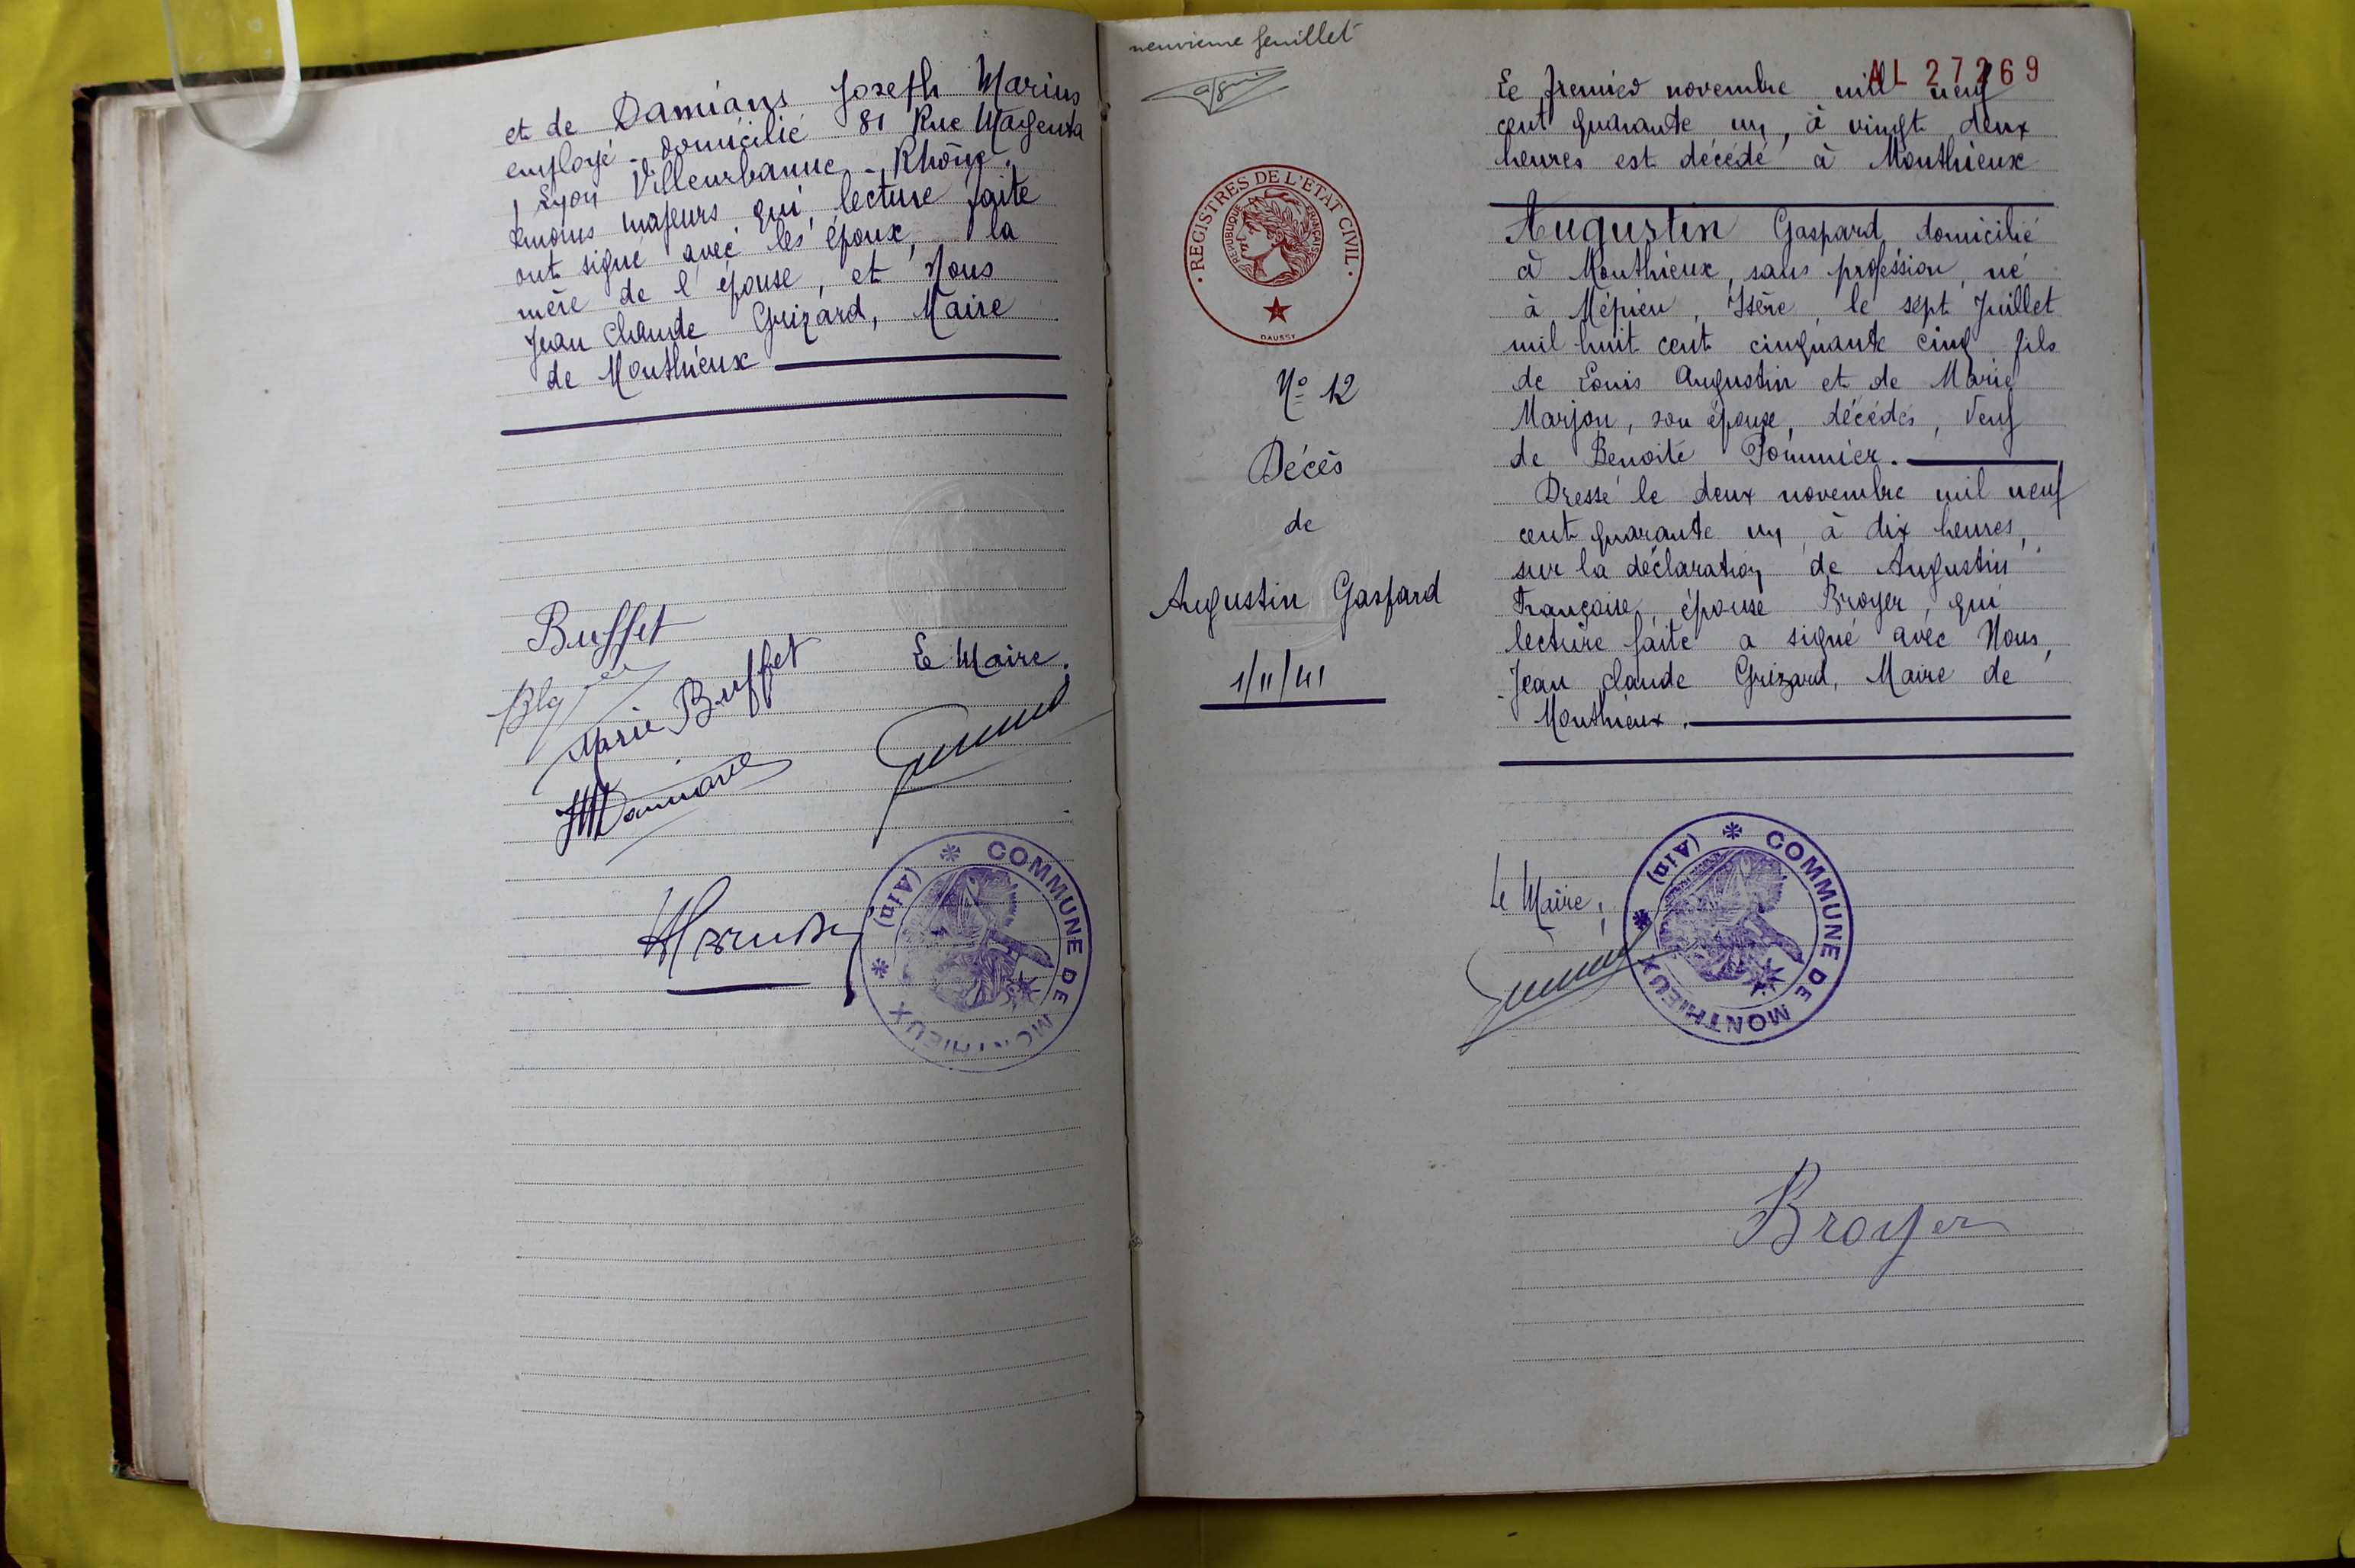 et de Damians Joseph Marius
employé - domicilié 81 Rue Magenta
Lyon Villeurbanne - Rhône.
témoins majeurs qui, lecture faite
ont signé avec les époux, la
mère de l'épouse, et Nous
Jean Claude Grizard, Maire
de Monthieux
Buffet
Marie Buffet
Le Maire.
COMMUNE DE MONTHIEUX
(Ain)
neuvieme feuillet
REGISTRES DE L'ETAT CIVIL
REPUBLIQUE FRANÇAISE
DAUSSY
No 12
Décès
de
Augustin Gaspard
1/11/41
AL 27269
Le premier novembre mil neuf
cent quarante un, à vingt deux
heures est décédé à Monthieux
Augustin Gaspard domicilié
à Monthieux, sans profession, né
à Mépieu, Isère, le sept Juillet
mil huit cent cinquante cinq fils
de Louis Augustin et de Marie
Marjon, son épouse, décédés, veuf
de Benoite Pommier.
Dressé le deux novembre mil neuf
cent quarante un, à dix heures,
sur la déclaration de Augustin
Françoise, épouse Broyer, qui
lecture faite a signé avec Nous,
Jean Claude Grizard, Maire de
Monthieux.
Le Maire,
COMMUNE DE MONTHIEUX
(Ain)
Broyer